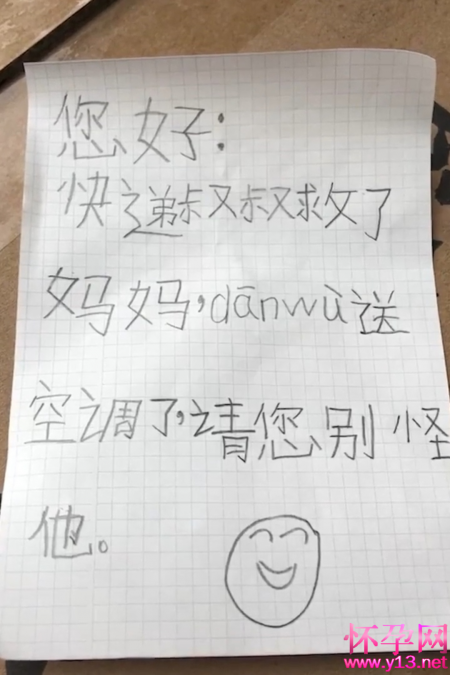 您好：
快递叔叔救了
妈妈，dānwù送
空调了，请您别怪
他。
怀孕网
www.y13.net